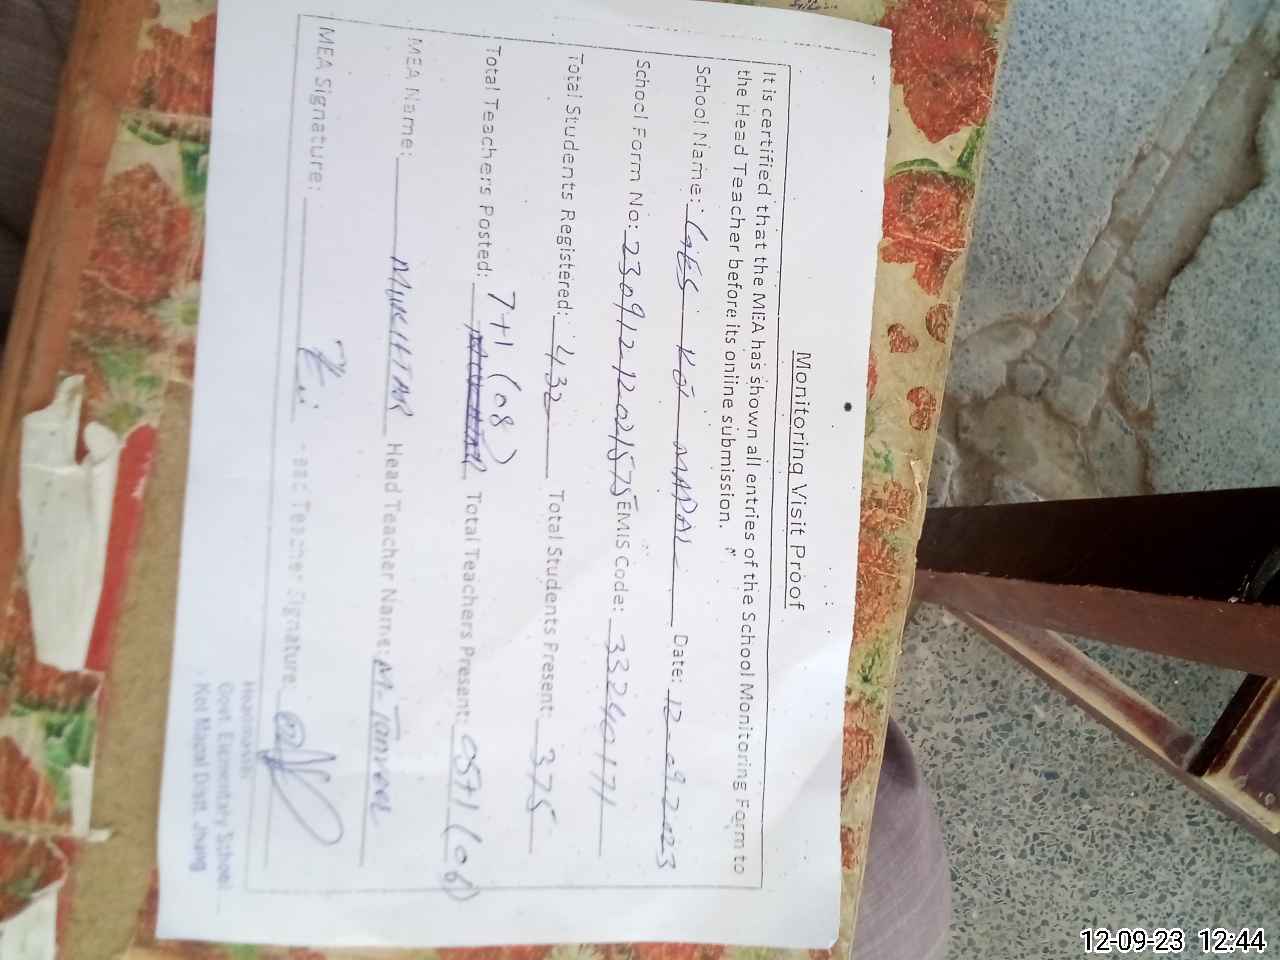 Monitoring Visit Proof
It is certified that the MEA has shown all entries of the School Monitoring Form to
the Head Teacher before its online submission.
School Name: GES KOT MAPAL Date: 12-09-2023
School Form No: 2309/2-1202/575 EMIS Code: 33240171
Total Students Registered: 432 Total Students Present: 375
7+1 (08)
Total Teachers Posted: Total Teachers Present: 05+1 (06)
MEA Name: MUKHTAR Head Teacher Name: M. Tanveer
MEA Signature: Head Teacher Signature:
Headmaster
Govt. Elementary School
Kot Mapal Distt. Jhang
12-09-23 12:44